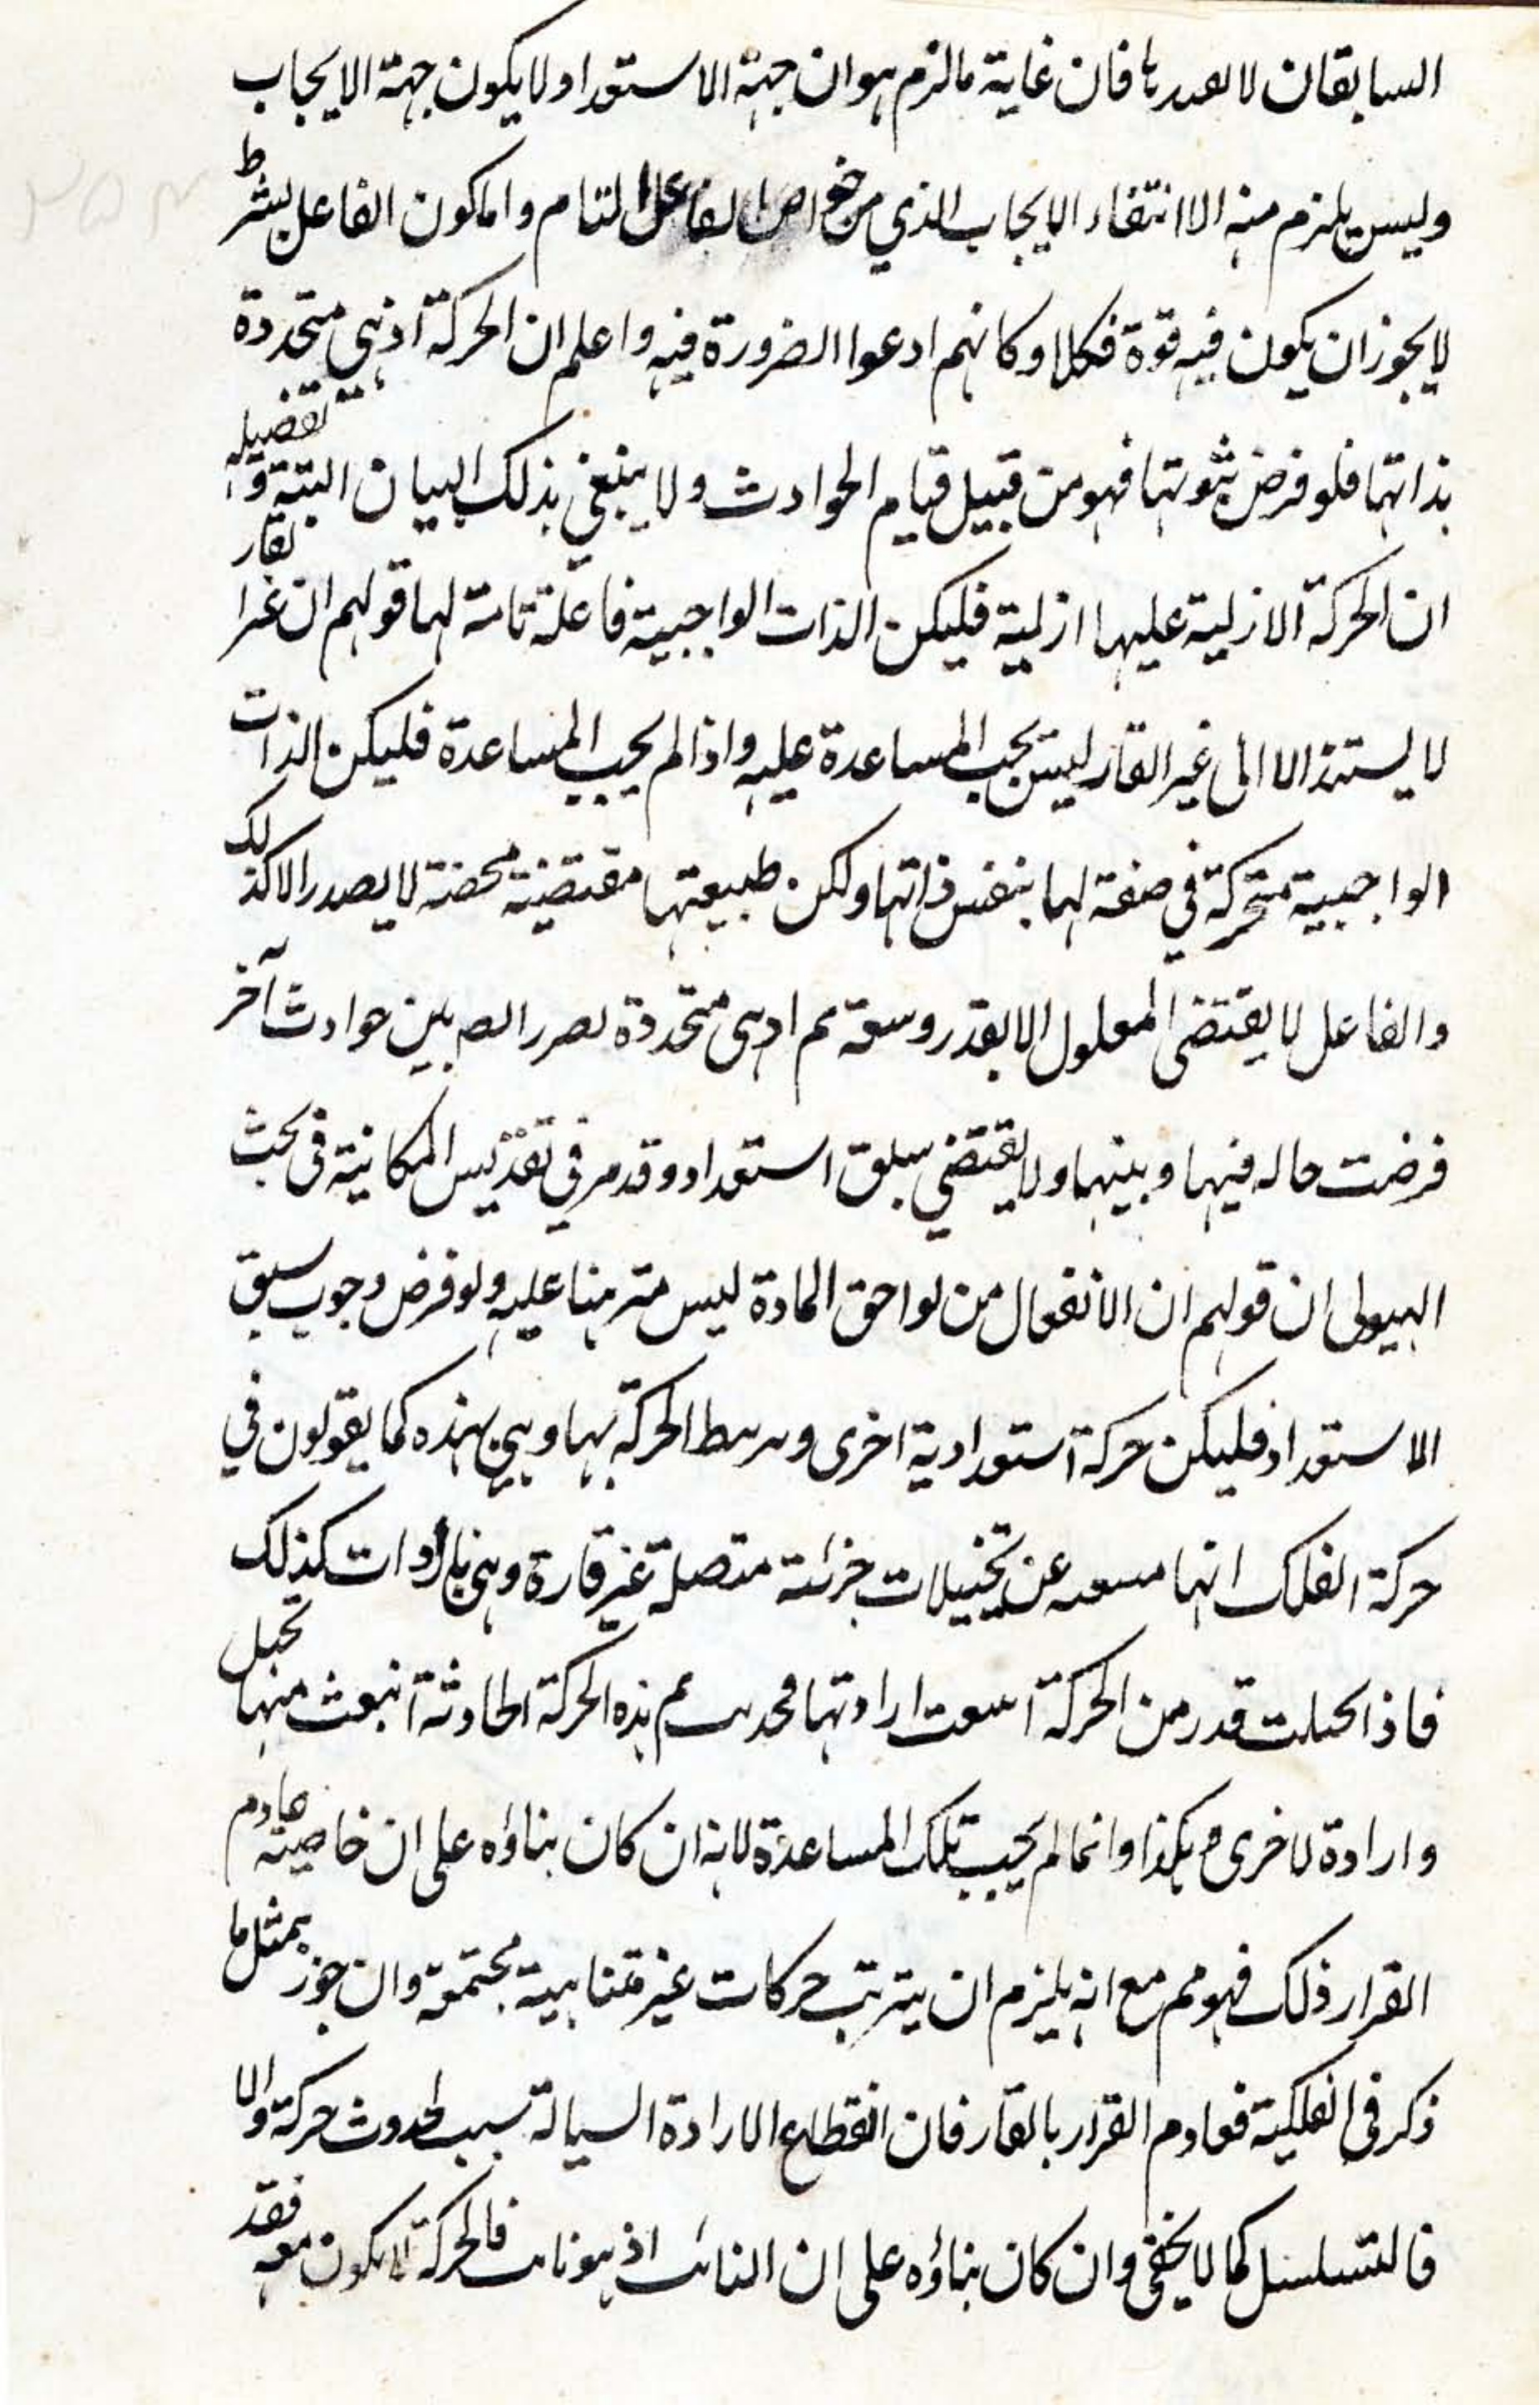 السابقان لا فان غاية ما لزم هو ان جهة الاستعداد لا يكون جهة الايجاب
وليس يلزم منه الا انتفاء الايجاب الذي من خواص الفاعل التام واما كون الفاعل بشرط
لا يجوز ان يكون فيه قوة فكلا وكانهم ادعوا الضرورة فيه واعلم ان الحركة اذ هي متجددة
بذاتها فلو فرض ثبوتها فهو من قبيل قيام الحوادث ولا ينبغي بذلك البيان البتة وتفصيله
ان الحركة الازلية عليها ازلية فليكن الذات الواجبية فاعلة تامة لها قولهم ان غير القار
لا يستند الا الى غير القار ليس يجب المساعدة عليه واذا لم يجب المساعدة فليكن الذات
الواجبية متحركة في صفة لها بنفس ذاتها ولكن طبيعتها مقتضية محضة لا يصدر الا كذلك
والفاعل لا يقتضى المعلول الا بقدر وسعة ثم اذ هى متجددة بين حوادث آخر
فرضت حاله فيها وبينها ولا يقتضي سبق استعداد وقد مر في تقديس المكانية في بحث
الهيولى ان قولهم ان الانفعال من لواحق المادة ليس متبرهنا عليه ولو فرض وجوب سبق
الاستعداد فليكن حركة استعدادية اخرى الحركة بها وهي بهذه كما يقولون في
حركة الفلك انها عن تخييلات جزئية متصلة غير قارة وهي بارادات كذلك
فاذا تخيلت قدر من الحركة ارادتها ثم هذه الحركة الحادثة انبعث منها تخيل
وارادة لاخرى وهكذا وانما لم يجب تلك المساعدة لانه ان كان بناؤه على ان خاصية عادم
القرار ذلك فهو مم مع انه يلزم ان يترتب حركات غير متناهية مجتمعة وان جوز بمثل ما
ذكر فى الفلكية فعادم القرار بالقار فان انقطاع الارادة السيالة سبب لحدوث حركة والا
فالتسلسل كما لا يخفى وان كان بناؤه على ان الثابت اذ هو ثابت فالحركة لا يكون معه فقد